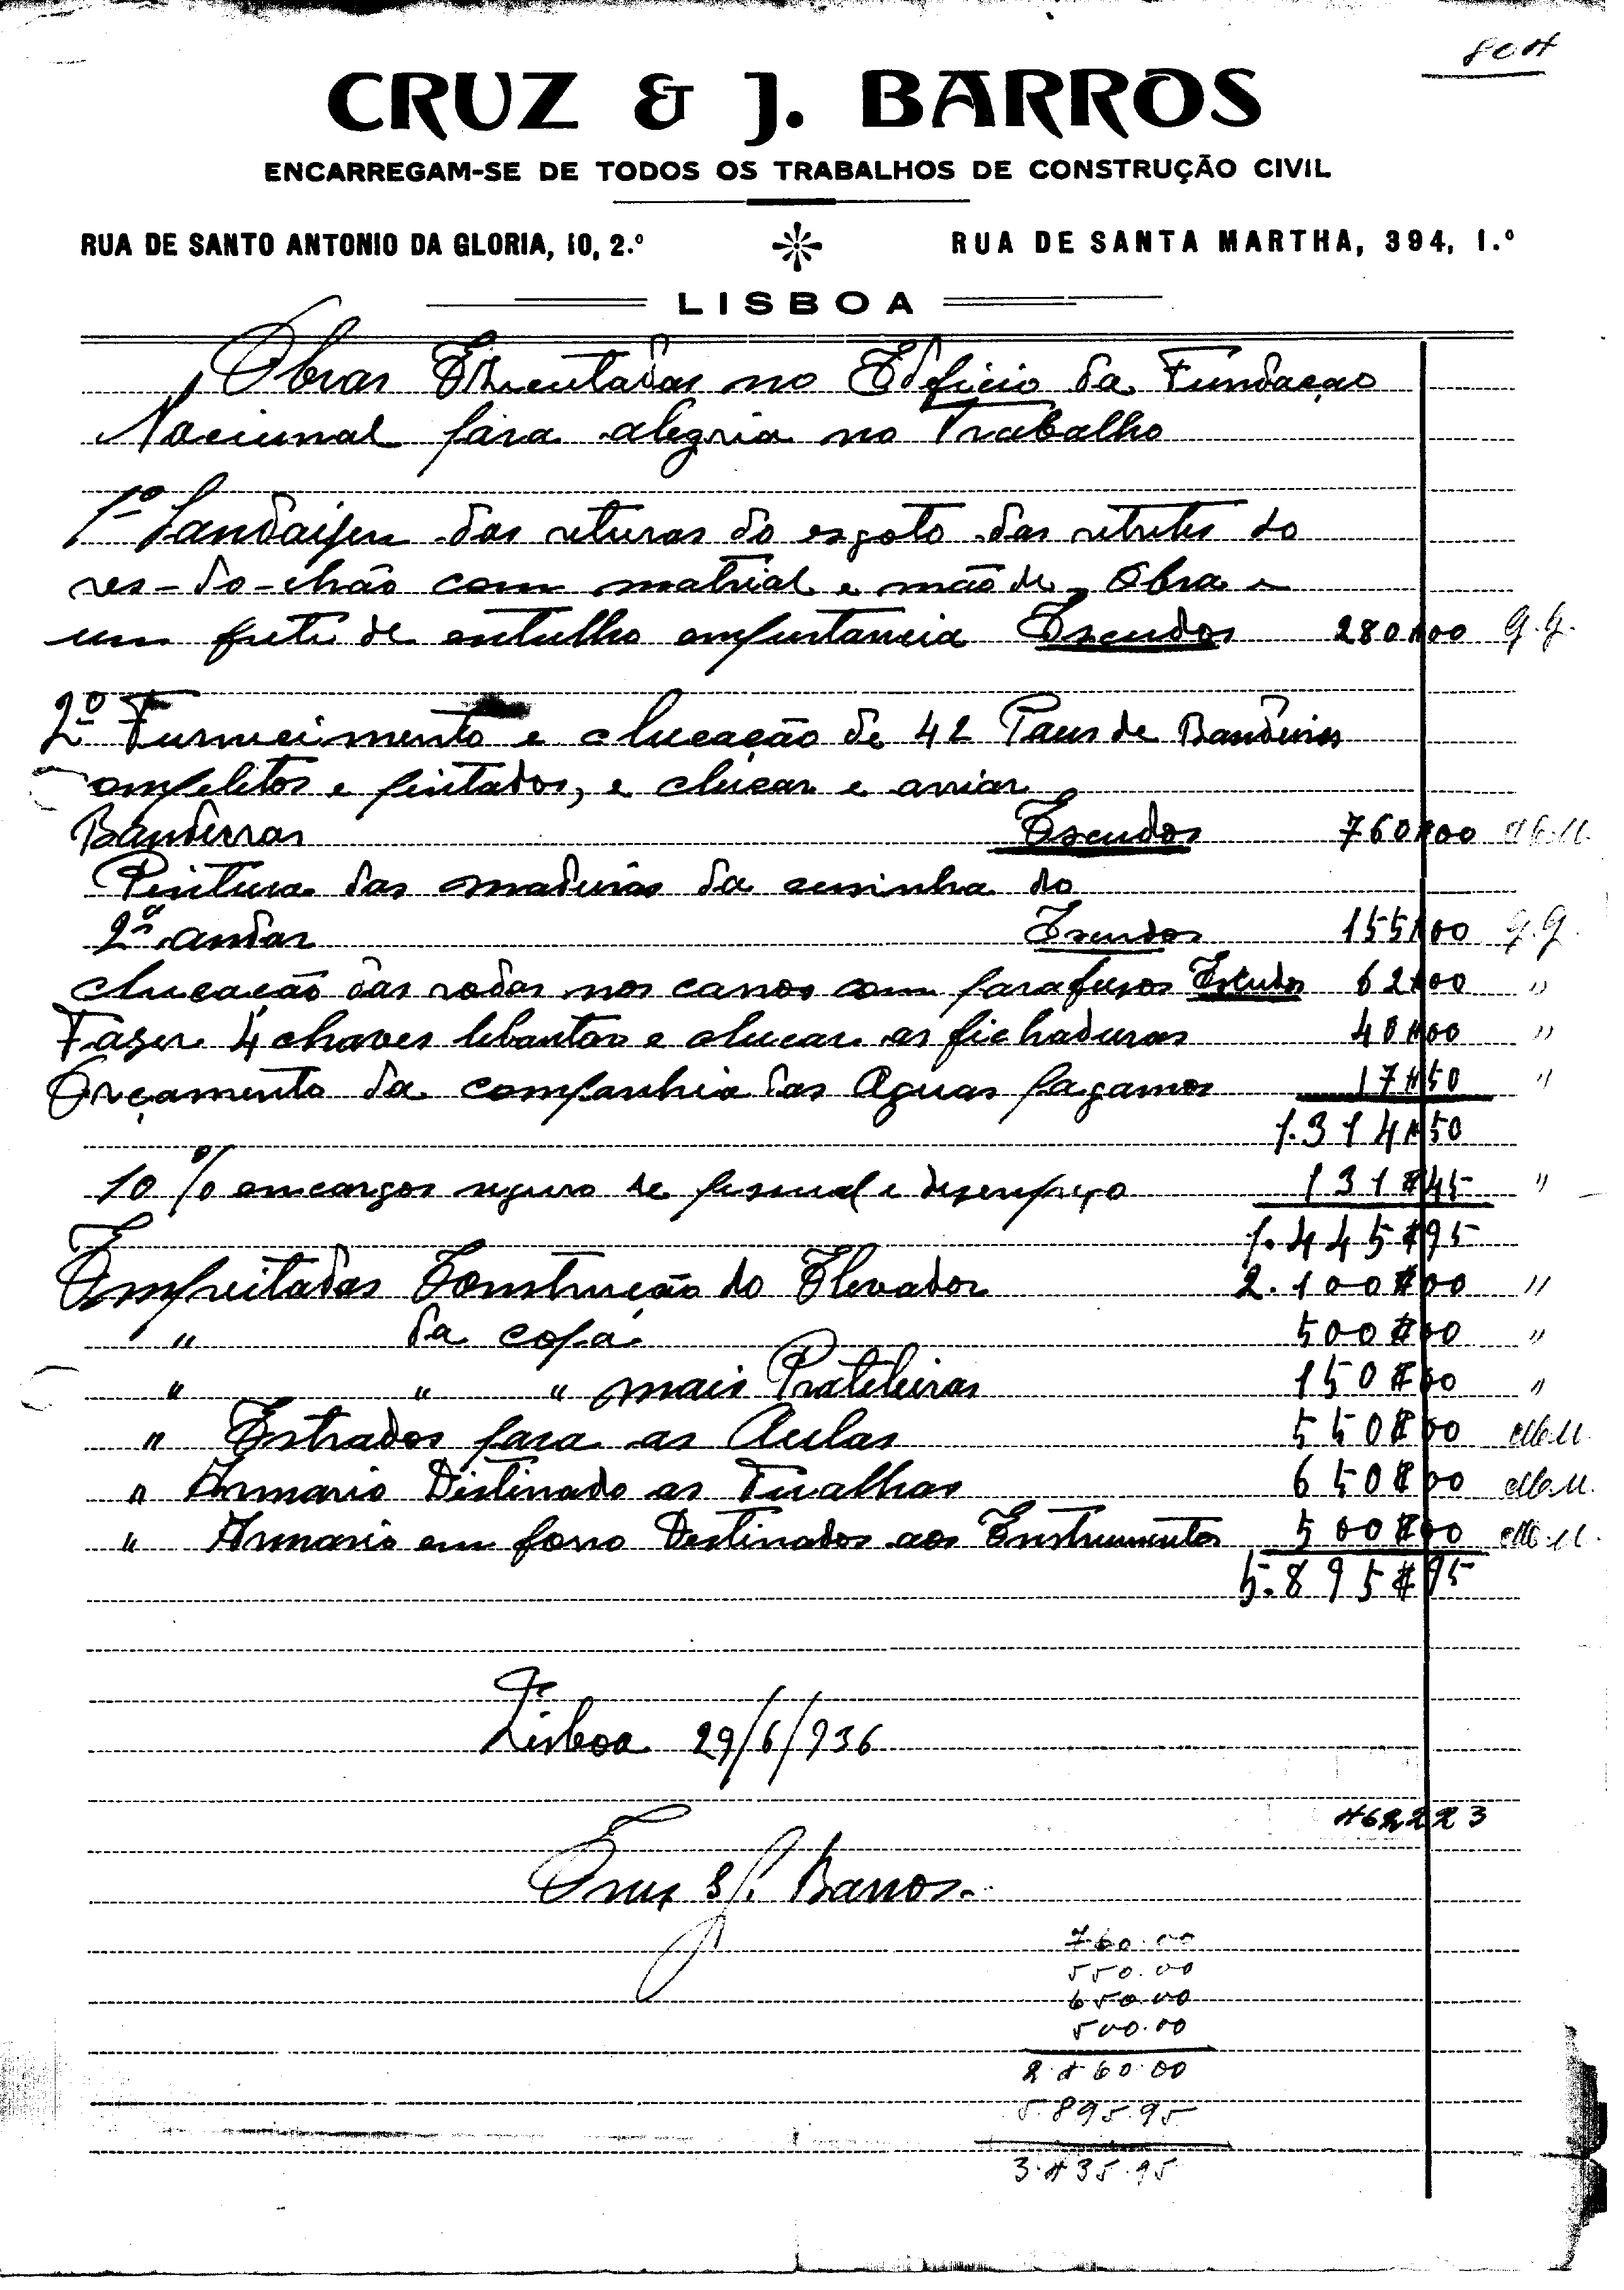 CRUZ & J. BARROS
ENCARREGAM-SE DE TODOS OS TRABALHOS DE CONSTRUÇÃO CIVIL
RUA DE SANTO ANTONIO DA GLORIA, 10, 2.º
RUA DE SANTA MARTHA, 394, 1.º
LISBOA
Obras Ezecutadas no Edeficio da Fundação
Naciunal para alegria no Trabalho
1º das returas do esgoto das retretes do
res-do-chão com matrial e mão de Obra e
um frete de entulho emportancia Escudos 280$00 G.G.
2º Furnecimento e clucação de 42 Paus de Bandeiras
ompeletos e pintados, e clucar e arriar
Bandeiras Escudos 760$00
Pintura das madeiras da cusinha do
2º andar Escudos 155$00 G.G.
clucação das rodas nos canos com parafusos Escudos 62$00 "
Faser 4 chaves lebantar e clucar as fichaduras 40$00 "
Orçamento da companhia das Aguas pagamos 17$50 "
1.314$50
10 % emcargos seguro de pesual e desempreço 131$45 "
1.445$95
Empreitadas Construção do Elevador 2.100$00 "
" da copa 500$00 "
" " " mais Prateleiras 150$00 "
" Estrados para as Aulas 550$00
" Armario Distinado as Tualhas 650$00
" Armario em forro Destinados aos Enstrumentos 500$00
5.895$95
Lisboa 29/6/936
462223
Cruz & J. Barros
760.00
550.00
650.00
500.00
2.460.00
5.895.95
3.435.95